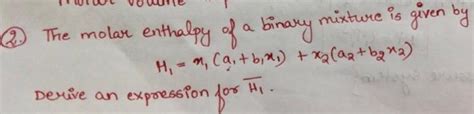 molar volume
2. The molar enthalpy of a binary mixture is given by
H₁ = x₁ (a₁ + b₁x₁) + x₂(a₂ + b₂x₂)
Derive an expression for H̅₁.